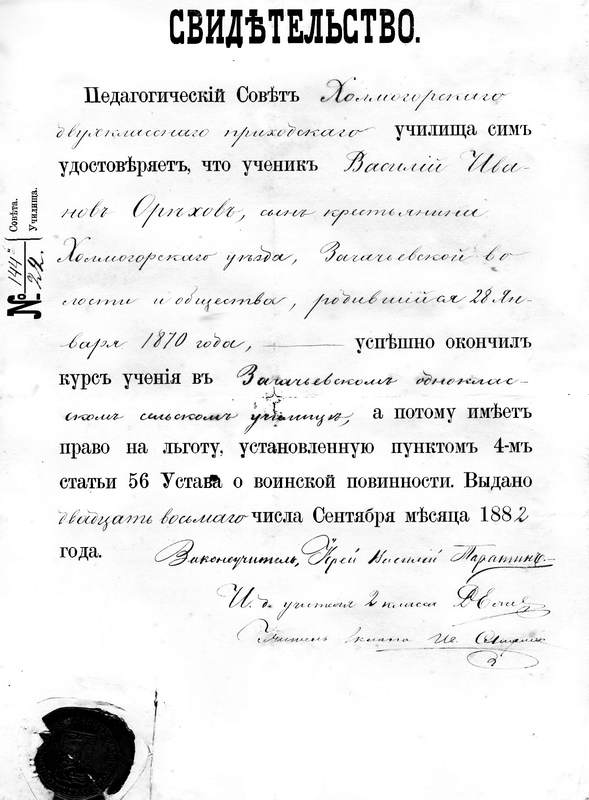 СВИДѢТЕЛЬСТВО.
Педагогическій Совѣтъ Холмогорскаго
двухкласснаго приходскаго училища симъ
удостовѣряетъ, что ученикъ Василій Ива-
новъ Орѣховъ, сынъ крестьянина
Холмогорскаго уѣзда, Загачьевской во
лости и общества, родившійся 28 Ян-
варя 1870 года, успѣшно окончилъ
курсъ ученія въ Загачьевскомъ однокла-
скомъ сельскомъ училищѣ, а потому имѣетъ
право на льготу, установленную пунктомъ 4-мъ
статьи 56 Устава о воинской повинности. Выдано
двадцать восьмаго числа Сентября мѣсяца 1882
года.
Законоучитель, Іерей Василій
И. д. учителя 2 класса
Учитель класса
№ 144 Совѣта.
22. Училища.